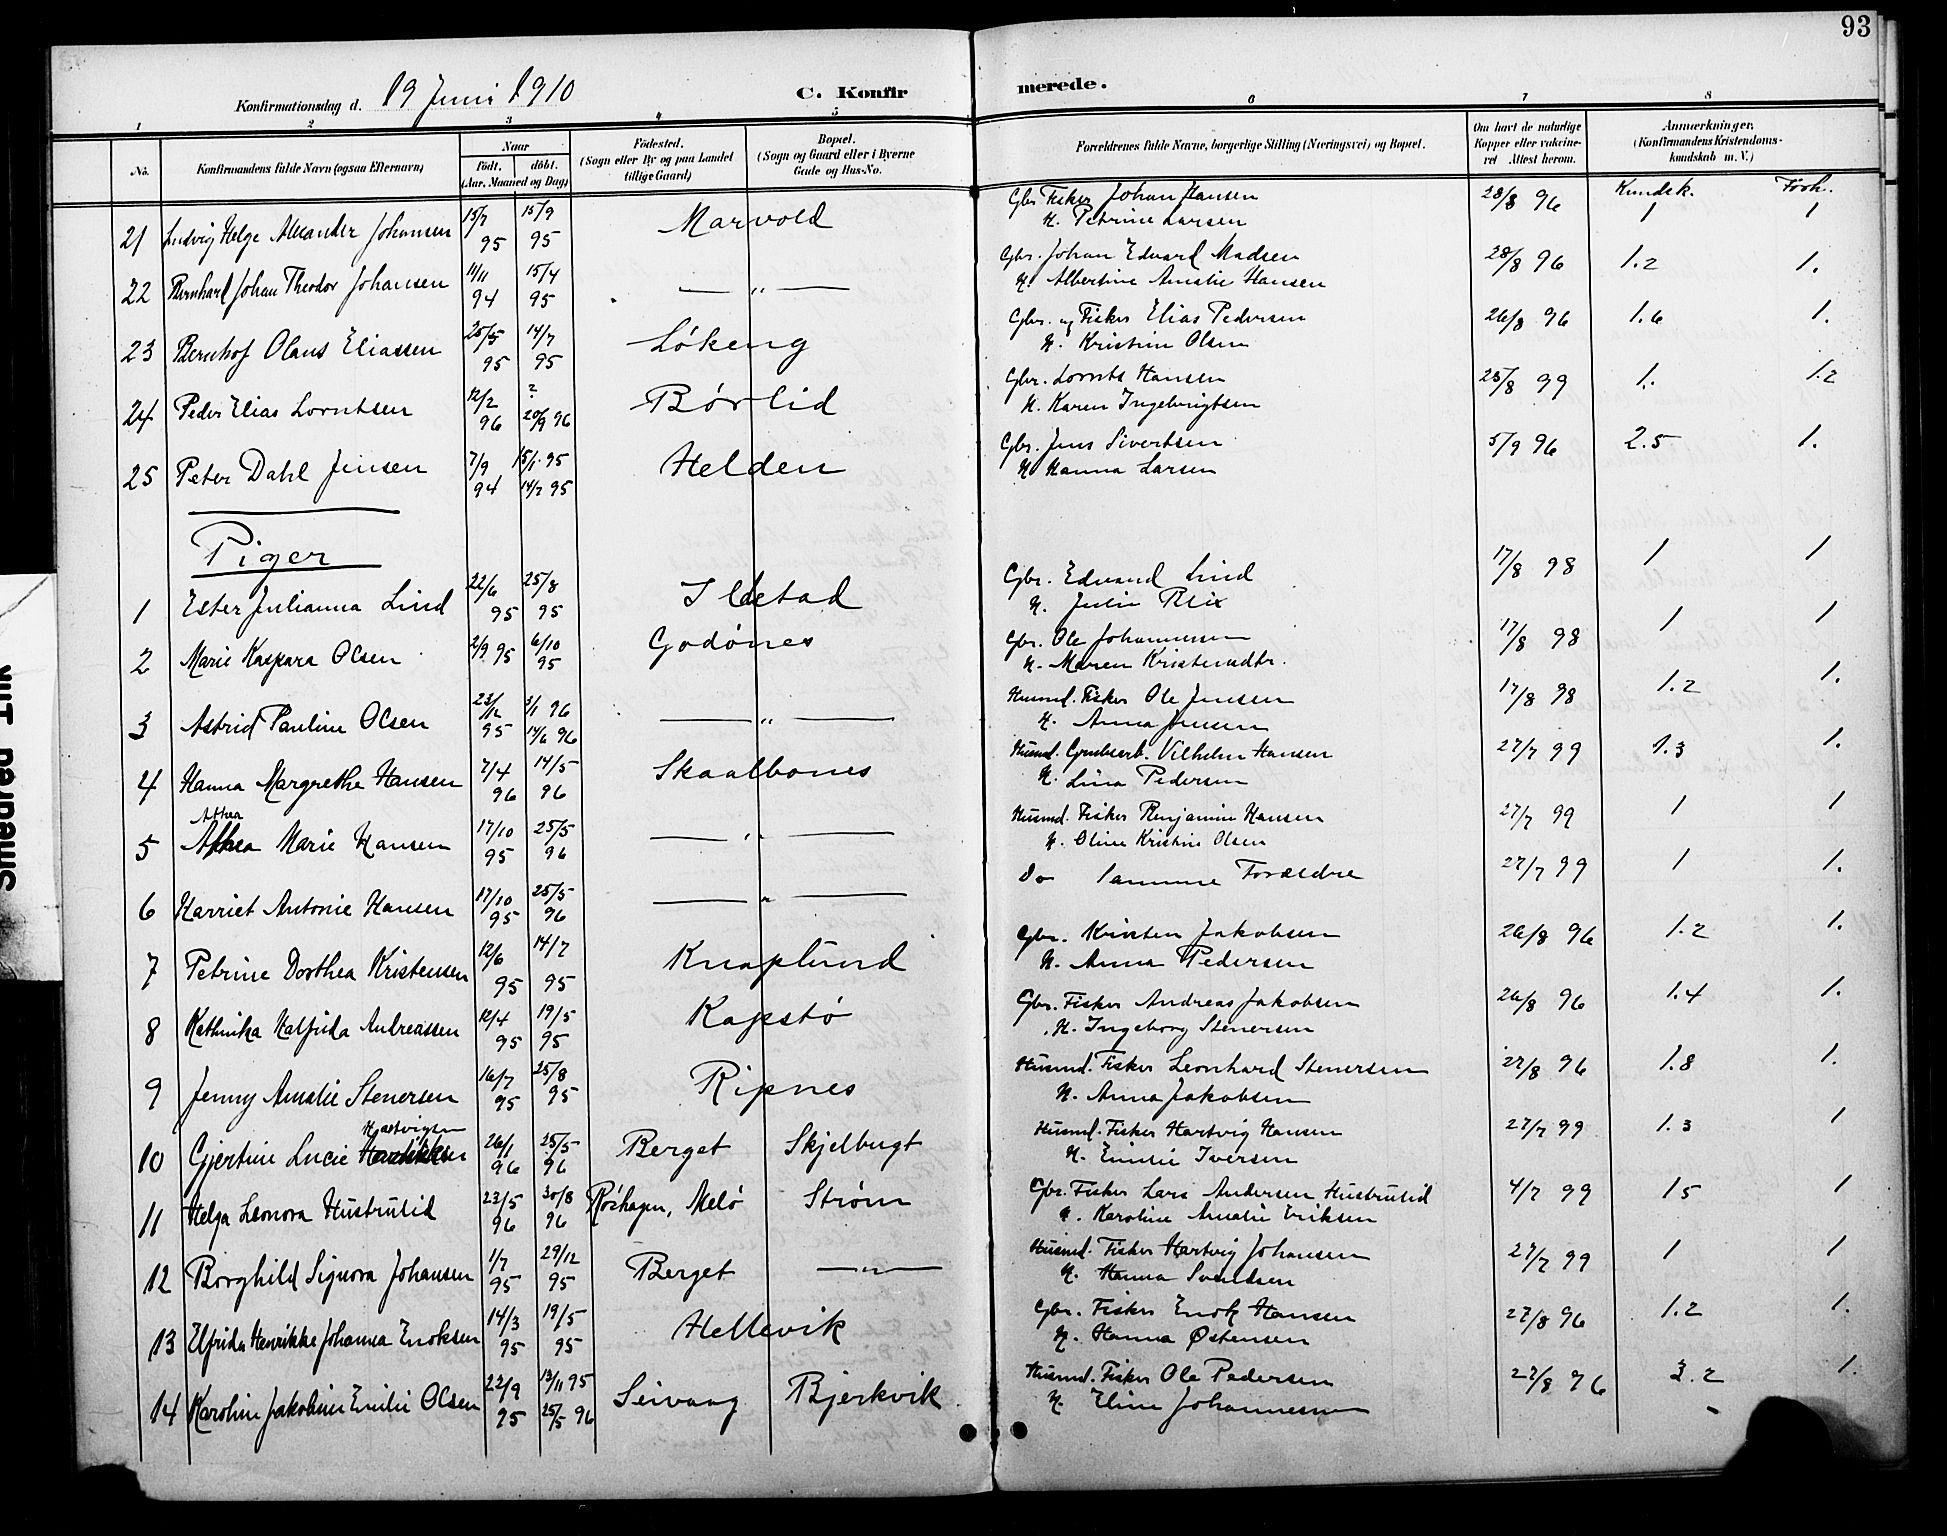 93
Konfirmationsdag d. 19 Juni 1910
C. Konfirmerede.
1 2 3 4 5 6 7 8
No. Konfirmandens fulde Navn (ogsaa Efternavn) Naar födt. döbt. (Aar, Maaned og Dag) Födested. (Sogn eller By og paa Landet tillige Gaard) Bopæl. (Sogn og Gaard eller i Byerne Gade og Hus-No. Forældrenes fulde Navne, borgerlige Stilling (Næringsvei) og Bopæl. Om havt de naturlige Kopper eller vakcineret Attest herom. Anmærkninger. (Konfirmandens Kristendomskundskab m. V.)
Kundsk. Forh.
21 Ludvig Helge Alexander Johansen 15/7 95 15/9 95 Marvold Gbr. Fisker Johan Hansen 28/8 96 1 1
H. Petrine Larsen
22 Bernhard Johan Theodor Johansen 11/11 94 15/4 95 — " — Gbr. Johan Edvard Madsen 28/8 96 1.2 1.
H. Albertine Amalie Hansen
23 Bernhof Olaus Eliassen 25/5 95 14/7 95 Løkeng Gbr. og Fisker Elias Pedersen 26/8 96 1.6 1.
H. Kristine Olsen
24 Peder Elias Lorntsen 12/2 96 ? 20/9 96 Børlid Gbr. Lornts Hansen 25/8 99 1. 1.2
H. Karen Ingebrigtsen
25 Peter Dahl Jensen 7/9 94 15/1 95 14/7 95 Helden Gbr. Jens Sivertsen 5/9 96 2.5 1.
H. Hanna Larsen
Piger
1 Ester Julianna Lind 22/6 95 25/8 95 Ildstad Gbr. Edvard Lind 17/8 98 1 1
H. Julie Blix
2 Marie Kaspara Olsen 2/9 95 6/10 95 Godønes Gbr. Ole Johannessen 17/8 98 1 1
H. Maren Kristensdtr.
3 Astrid Pauline Olsen 23/12 95 3/1 96 14/6 96 — " — Husmd. Fisker Ole Jensen 17/8 98 1.2 1.
H. Anna Jensen
4 Hanna Margrethe Hansen 7/4 96 14/5 96 Skaalbones Husmd. Grubearb. Vilhelm Hansen 27/7 99 1.3 1.
H. Lina Pedersen
Althea
5 Althea Marie Hansen 17/10 95 25/5 96 — " — Husmd. Fisker Benjamin Hansen 27/7 99 1 1
H. Oline Kristine Olsen
6 Harriet Antonie Hansen 17/10 95 25/5 96 — " — Do samme Forældre 27/7 99 1 1.
7 Petrine Dorthea Kristensen 12/6 95 14/7 95 Knaplund Gbr. Kristen Jakobsen 26/8 96 1.2 1.
H. Anna Pedersen
8 Kathinka Halfrida Andreassen 12/4 95 19/5 95 Kapstø Gbr. Fisker Andreas Jakobsen 26/8 96 1.4 1.
H. Ingeborg Stenersen
9 Jenny Amalie Stenersen 16/7 95 25/8 95 Ripnes Husmd. Fisker Leonhard Stenersen 27/8 96 1.8 1.
H. Anna Jakobsen
Hartvigsen
10 Gjertine Lucie 26/1 96 25/5 96 Berget Skjelbugt Husmd. Fisker Hartvig Hansen 27/7 99 1.3 1
H. Emilie Iversen
11 Helga Leonora Hustrulid 23/5 96 30/8 96 Røshagen, Melø Strøm Gbr. Fisker Lars Andersen Hustrulid 4/7 99 1 5 1
H. Karoline Amalie Eriksen
12 Borghild Signora Johansen 1/7 95 29/12 95 Berget — " — Husmd. Fisker Hartvig Johansen 27/7 99 1 1
H. Hanna Svendsen
13 Elfrida Henrikke Johanna Enoksen 14/3 95 19/5 95 Hellevik Gbr. Fisker Enok Hansen 27/8 96 1.2 1.
H. Hanna Østensen
14 Karoline Jakobine Emilie Olsen 22/9 95 13/11 95 25/5 96 Seivaag Bjerkvik Husmd. Fisker Ole Pedersen 27/8 96 3.2 1.
H. Eline Johannessen